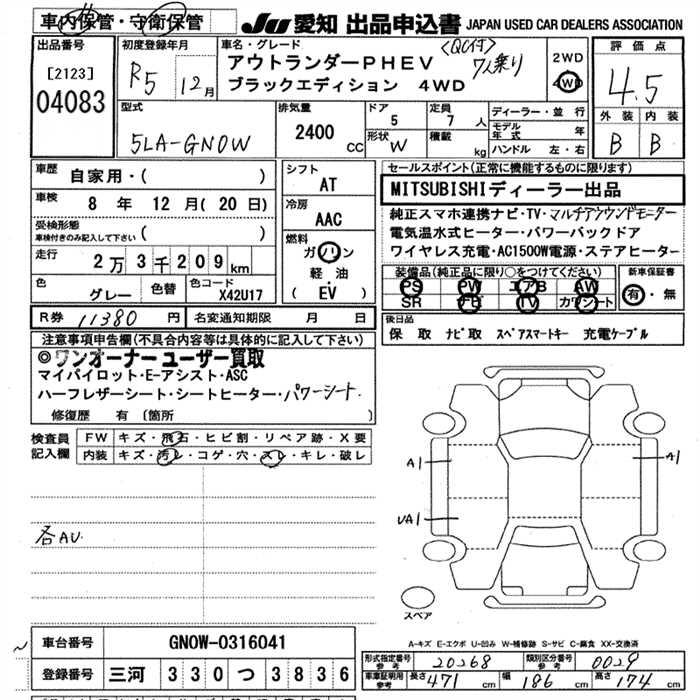 車内保管・守衛保管 JU 愛知 出品申込書 JAPAN USED CAR DEALERS ASSOCIATION
出品番号 [2123] 04083
初度登録年月 R5 12月
車名・グレード 〈QC付〉
アウトランダーPHEV 7人乗り
ブラックエディション 4WD
2WD
4WD
評価点 4.5
外装 内装
B B
型式 5LA-GN0W
排気量 2400 CC
ドア 5
定員 7 人
形状 W
積載 kg
ディーラー・並行
モデル年式 年
ハンドル 左・右
車歴 自家用・( )
車検 8 年 12 月(20 日)
受検形態
車検付きのみ記入して下さい ( )
走行 2万3千209km
色 グレー 色替 色コード X42U17
シフト AT
冷房 AAC
燃料 ガソリン
軽油・
( EV )
セールスポイント(正常に機能するものに限ります)
MITSUBISHIディーラー出品
純正スマホ連携ナビ・TV・マルチアラウンドモニター
電気温水式ヒーター・パワーバックドア
ワイヤレス充電・AC1500W電源・ステアヒーター
装備品(純正品に限り○をつけてください) 新車保証書
PS PW エアB AW 有・無
SR TV カワシート
R券 11380 円 名変通知期限 月 日
後日品
保 取 ナビ取 スペアスマートキー 充電ケーブル
注意事項申告欄(不具合内容等は具体的に記入して下さい)
◎ワンオーナー ユーザー買取
マイパイロット・E-アシスト・ASC
ハーフレザーシート・シートヒーター・パワーシート・
修復歴 有(箇所 )
検査員記入欄
FW キズ・飛石・ヒビ割・リペア跡・X要
内装 キズ・汚レ・コゲ・穴・スレ・キレ・破レ
各AU
A1 A1
UA1
スペア
A-キズ E-エクボ U-凹み W-補修跡 S-サビ C-腐食 XX-交換済
車台番号 GN0W-0316041
登録番号 三河 330 つ 3836
形式指定番号 参考 20268 類別区分番号 参考 0029
車庫証明用 参考 長さ 471 cm 幅 186 cm 高さ 174 cm